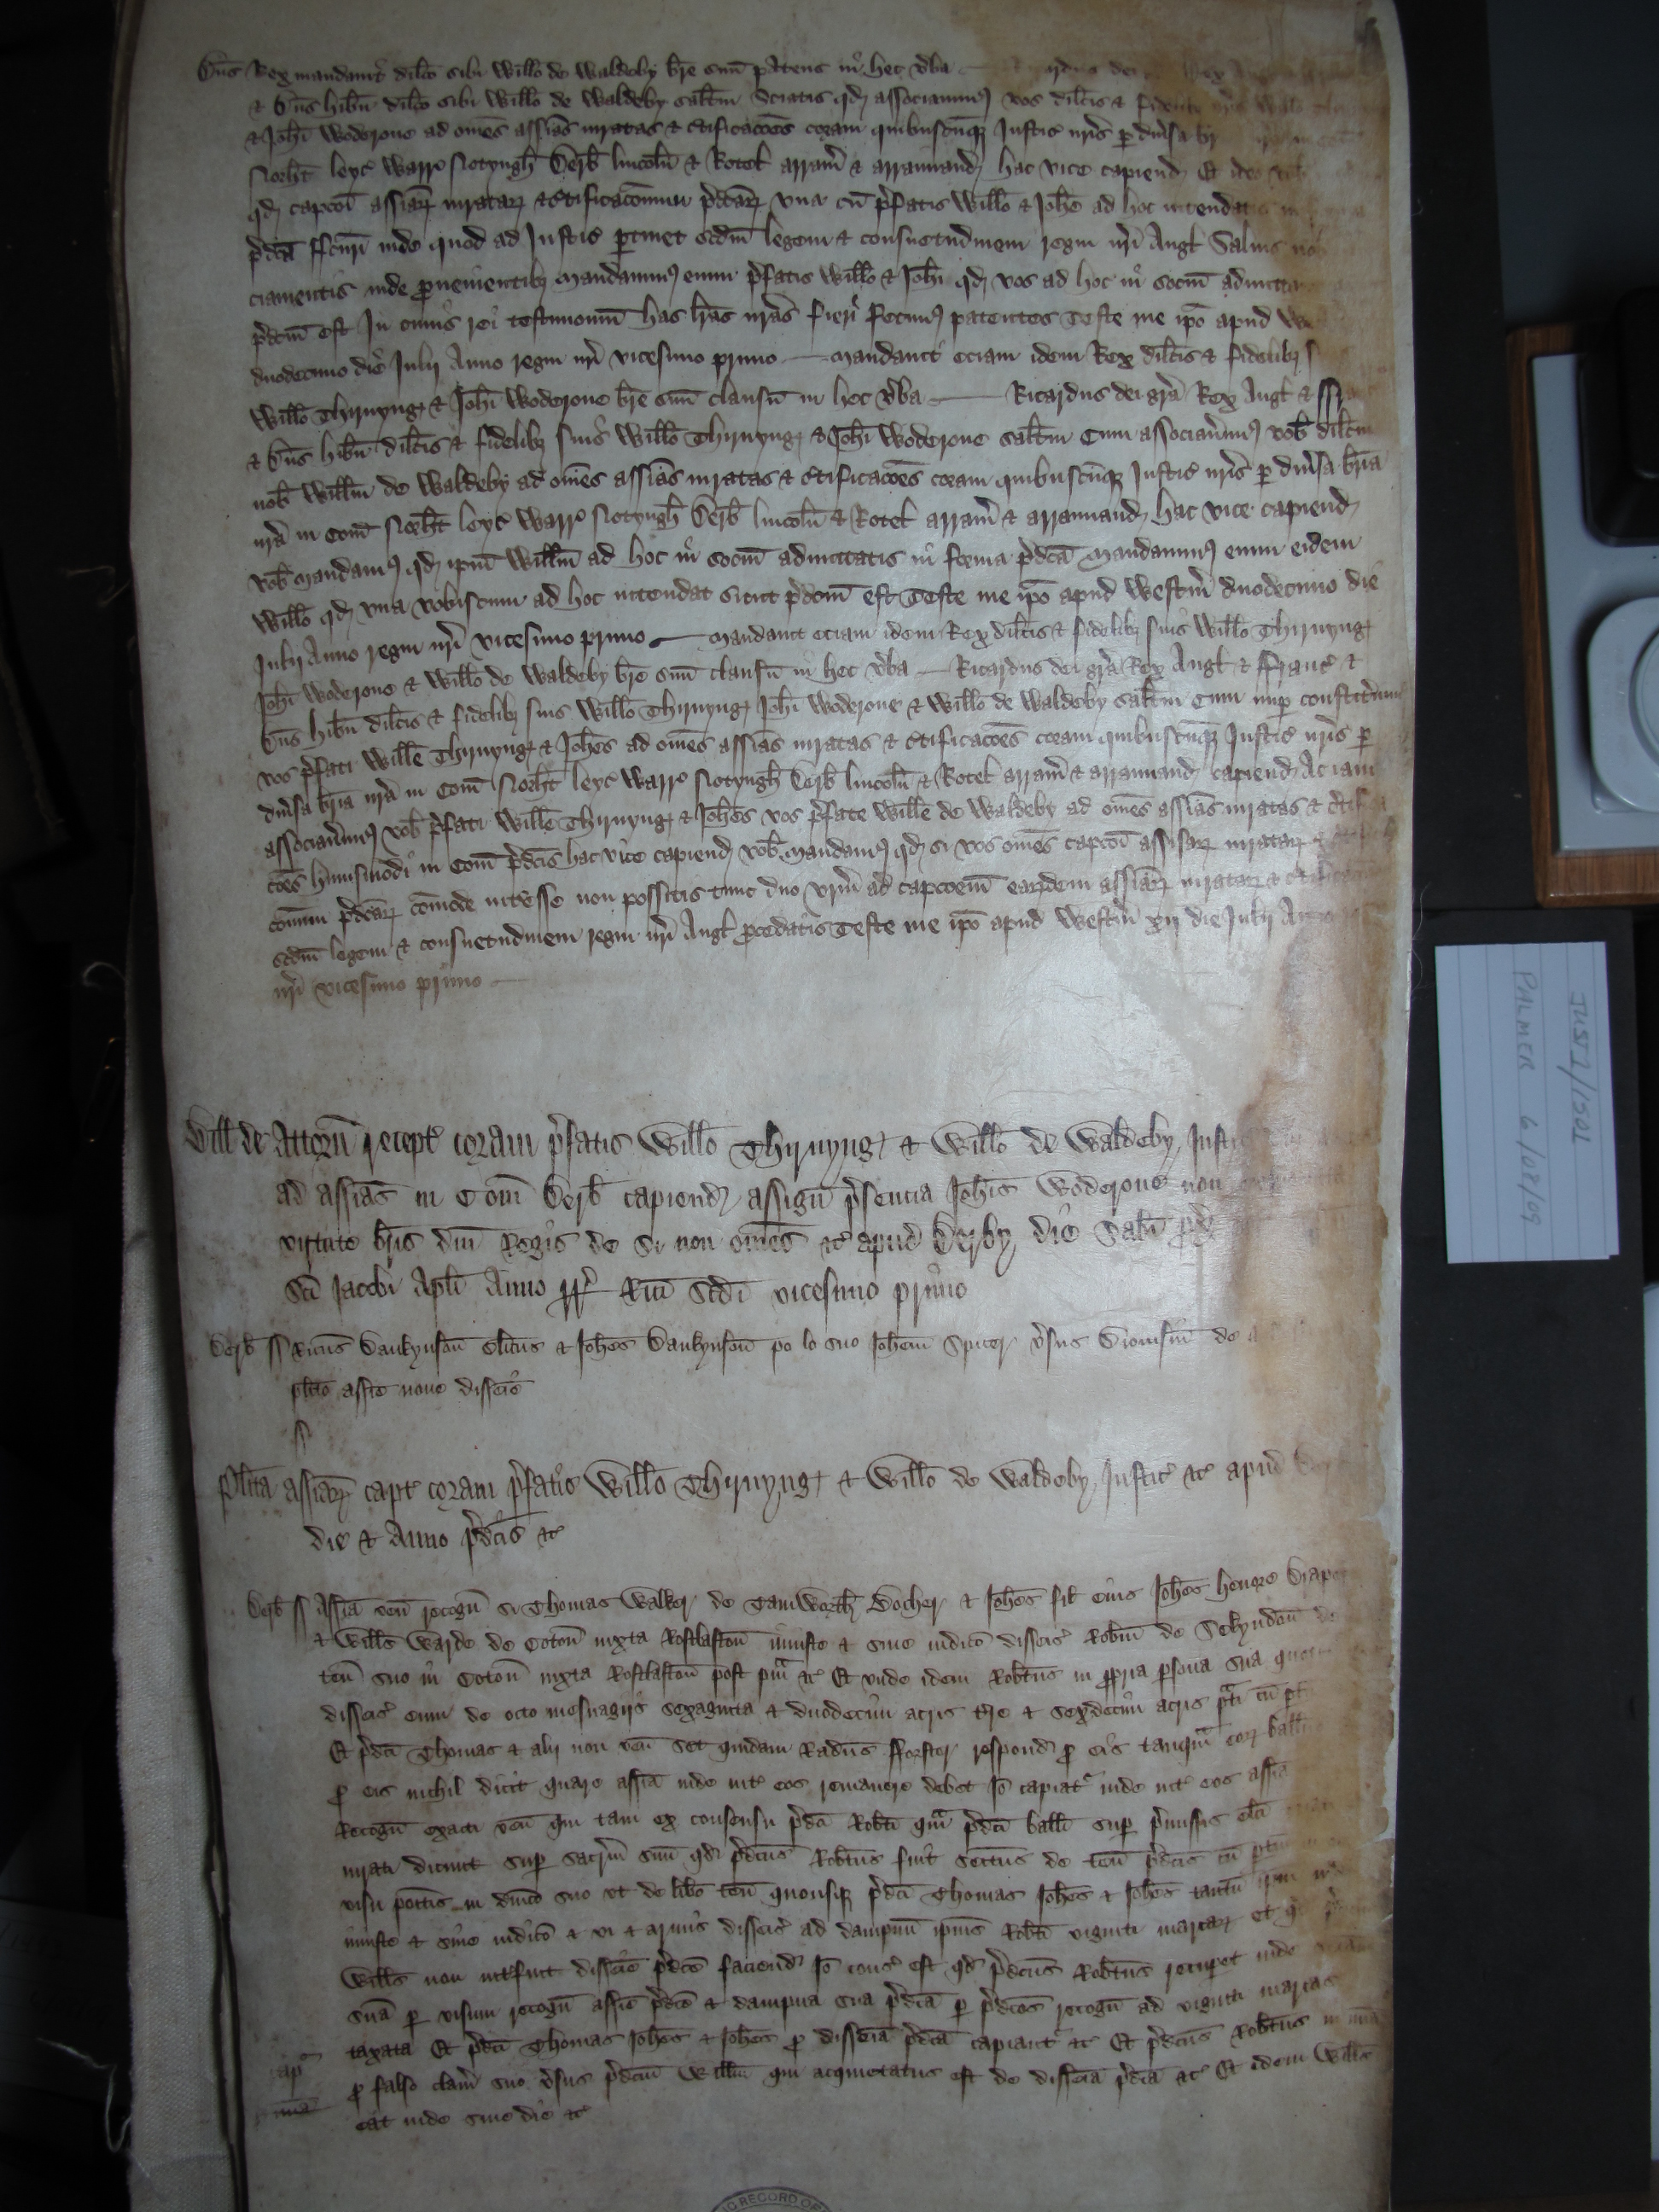 Dn̄s Rex mandauit dilc̄o sibi Willo de Waldeby br̄e suū patens in hec v̄ba
& Dn̄s hib̄n dilc̄o sibi Willo de Waldeby salt̄m Sciatis qd associauimus vos dilc̄is &
& Joh̄i Woderoue ad om̄es assi̅as iuratas & c̄tificac̄oes coram quibuscūq̨ Justic̄ nr̄is p diu̅sa br
Norh̄t Leyc̄ Warr̄ Notyngh̄ Derb̄ Lincol̄n & Rotel̄ arram̄ & arramand hac vice capiend Et ideo vob̄
qd capc̄oi assia̅ꝝ iurataꝝ & c̄tificac̄onum p̄dc̄aꝝ vna cū p̄fatis Willo & Joh̄e ad hoc intendatis in
p̄dc̄a ffc̄uri inde quod ad Justic̄ p̄tinet sc̄dm legem & consuetudinem regni nr̄i Angl̄ Saluis nob̄
ciamentis inde p̄uenientib̨ mandauimus enim p̄fatis Willo & Joh̄i qd vos ad hoc in sociū admitta
p̄dc̄m est In cuius rei testimoniū has lr̄as nr̄as fieri fecimus patentes Teste me ip̄o apud W
duodecimo die Julij Anno regni nr̄i vicesimo primo — mandauit eciam idem Rex dilc̄is & fidelib̨
Willo Thirnyng & Joh̄i Woderoue br̄e suū clausū in hec v̄ba — Ricardus dei gr̄a Rex Angl̄ &
& Dn̄s hib̄n dilc̄is & fidelib̨ suis Willo Thirnyng & Joh̄i Woderoue salt̄m Cum associau̅imus vob̄ dilc̄m
nob̄ Willm̄ de Waldeby ad om̄es assi̅as iuratas & c̄tificac̄oes coram quibuscūq̨ Justic̄ nr̄is p diu̅sa br̄ia
nr̄a in Com̄ Norh̄t Leyc̄ Warr̄ Notyngh̄ Derb̄ Lincol̄n & Rotel̄ arram̄ & arramand hac vice capiend
vob̄ mandamus qd ip̄m Willm̄ ad hoc in sociū admittatis in forma p̄dc̄a mandauimus enim eidem
Willo qd vna vobiscum ad hoc intendat sicut p̄dc̄m est Teste me ip̄o apud Westm̄ duodecimo die
Julij Anno regni nr̄i vicesimo primo — mandauit eciam idem Rex dilc̄is & fidelib̨ suis Willo Thirnyng
Joh̄i Woderoue & Willo de Waldeby br̄e suū clausū in hec v̄ba — Ricardus dei gr̄a Rex Angl̄ & Franc̄ &
Dn̄s hib̄n dilc̄is & fidelib̨ suis Willo Thirnyng Joh̄i Woderoue & Willo de Waldeby salt̄m Cum nup constituim
vos p̄fati Wille Thirnyng & Joh̄es ad om̄es assi̅as iuratas & c̄tificac̄oes coram quibuscūq̨ Justic̄ nr̄is p
diu̅sa br̄ia nr̄a in Com̄ Norh̄t Leyc̄ Warr̄ Notyngh̄ Derb̄ Lincol̄n & Rotel̄ arram̄ & arramand capiend Ac iam
associau̅imus vob̄ p̄fati Wille Thirnyng & Joh̄es vos p̄fate Wille de Waldeby ad om̄es assi̅as iuratas & c̄tifica
c̄oes huiusmodi in Com̄ p̄dc̄is hac vice capiend vob̄ mandamus qd si vos om̄es capc̄oi assisaꝝ iurataꝝ &
c̄onum p̄dc̄aꝝ com̄ode int̄esse non possitis tunc duo vr̄m ad capc̄oem eaꝝdem assia̅ꝝ iurataꝝ & c̄tificac
sc̄dm legem & consuetudinem regni nr̄i Angl̄ p̄cedatis Teste me ip̄o apud Westm̄ xij die Julij Anno
nr̄i vicesimo primo
Dill̄ de Attorn̄ recept̄ coram p̄fatis Willo Thirnyng & Willo de Waldeby Justic̄
ad assi̅as in Com̄ Derb̄ capiend assign̄ p̄sencia Joh̄is Woderoue non
virtute br̄is dn̄i Regis de Si non om̄es &c̄ apud Derby die Sab̄i p̄x
Sc̄i Jacobi Apl̄i Anno ꝝ Ric̄i Sc̄di vicesimo primo
Derb̄ ss Ric̄us Daukynson̄ cl̄icus & Joh̄es Daukynson̄ po lo suo Joh̄em Spicer v̄sus Dionisiū de
pl̄ito ass̄e noue disseis̄
Pl̄ita assi̅aꝝ capt̄ coram p̄fatis Willo Thirnyng & Willo de Waldeby Justic̄ &c̄ apud
die & Anno p̄dc̄is &c̄
Derb̄ ss Ass̄ia ven̄ recogn̄ si Thomas Walker de Tamworth̄ Bocher & Joh̄es fil̄ eius Joh̄es henore Drap
& Willo̅s Warde de Coton̄ iuxta Rostlaston̄ iniuste & sine iudic̄o disseis̄ Rob̄m de Sekyndon̄
ten̄ suo in Coton̄ iuxta Rostlaston̄ post p̄m &c̄ Et vnde idem Rob̄tus in p̄pria p̄sona sua
disseis̄ eum de octo mesuagiis sexaginta & duodecim acris t̄re & sexdecim acris p̄ti cū
Et p̄dc̄i Thomas & alij non ven̄ set quidam Rad̄us fforster respond p̄ eis tanq̄m eoꝝ ball̄i
p̄ eis nichil dicit quare ass̄ia inde int̄ eos remanere debet Jō capiat̄ inde int̄ eos ass̄ia
Recogn̄ exacti ven̄ qui tam ex consensu p̄dc̄i Rob̄ti q̄m p̄dc̄i ball̄i sup p̄missis elc̄i
iurati dicunt sup sacr̄m suū qd p̄dc̄us Rob̄tus fuit seisitus de ten̄ p̄dc̄is cū ptin̄
visu positis in dn̄ico suo vt de lib̄o ten̄ quousq̨ p̄dc̄i Thomas Joh̄es & Joh̄es tantū ip̄m
iniuste & sine iudic̄o & vi & armis disseis̄ ad dampnū ip̄ius Rob̄ti viginti marcaꝝ et qd
Willo̅s non int̄fuit disseie p̄dc̄e faciend Jō cons̄ est qd p̄dc̄us Rob̄tus recup̄et inde
suā p visum recogn̄ ass̄ie p̄dc̄e & dampna sua p̄dc̄a p p̄dc̄os recogn̄ ad viginti marcas
taxata Et p̄dc̄i Thomas Joh̄es & Joh̄es p̄ diss̄ia p̄dc̄a capiant̄ &c̄ Et p̄dc̄us Rob̄tus in mi̅a
p̄ falso clam̄ suo v̄sus p̄dc̄m Willm̄ qui acquietatus est de diss̄ia p̄dc̄a &c̄ Et idem Willo̅s
eat inde sine die &c̄
cap̄
mi̅a
JUST1/1501
PALMER 6/02/09
RECORD OF